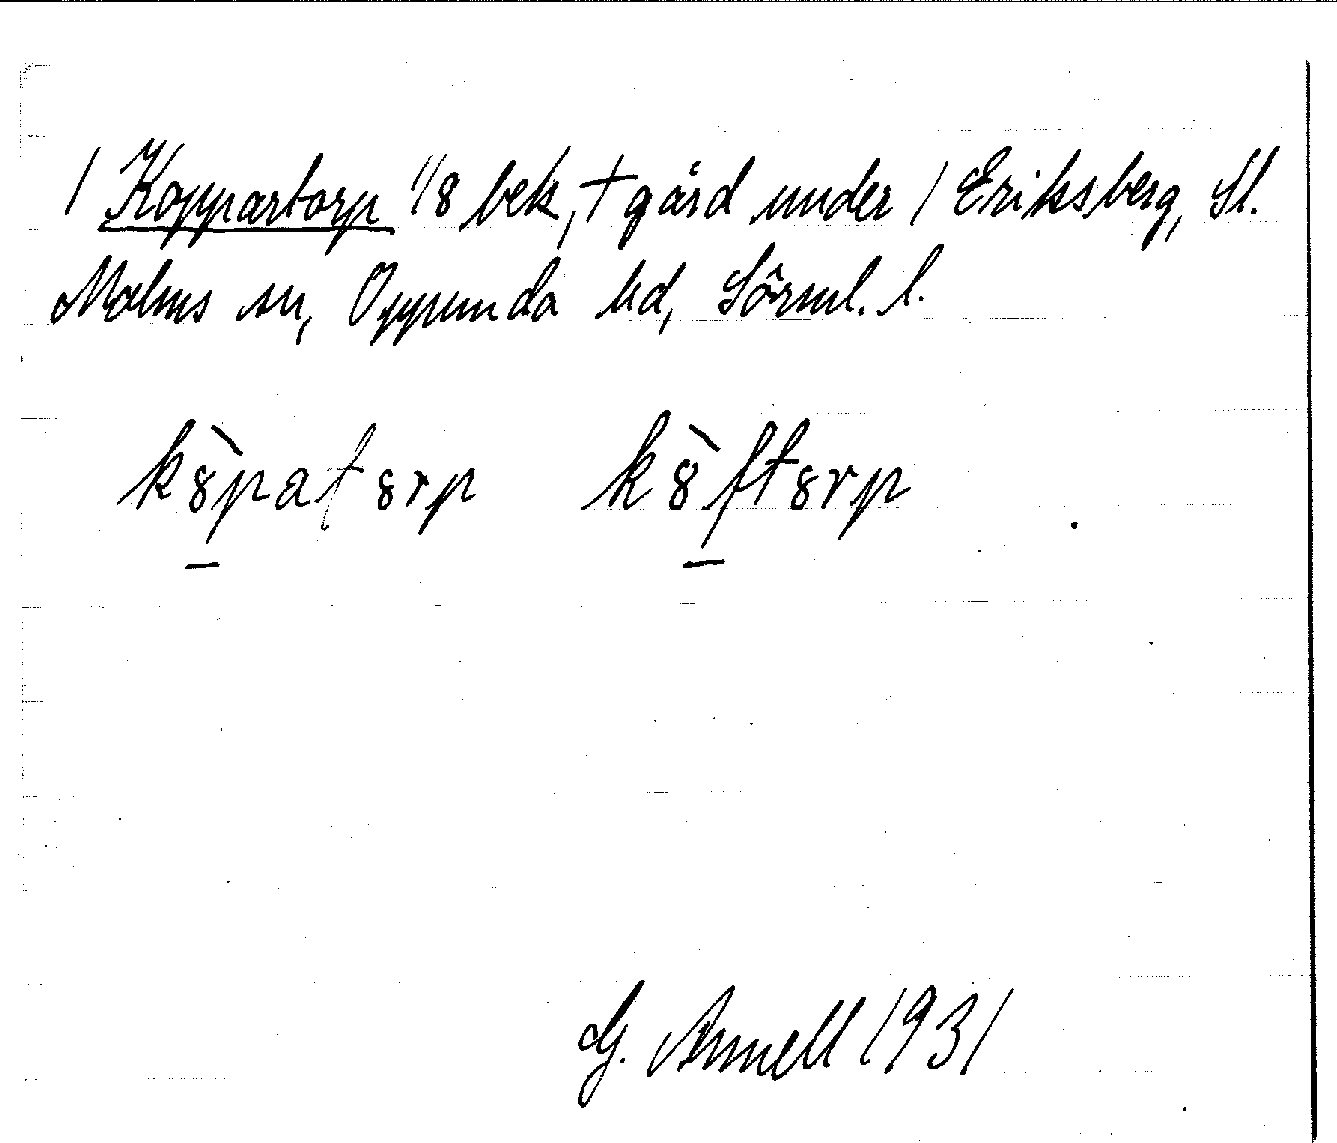 / Koppartorp 1/8 bek, † gård under / Eriksberg, St.
Malms sn, Oppunda hd, Sörml. l.
kȣ̀patȣrp kȣ̀ftȣrp
G. Annell 1931